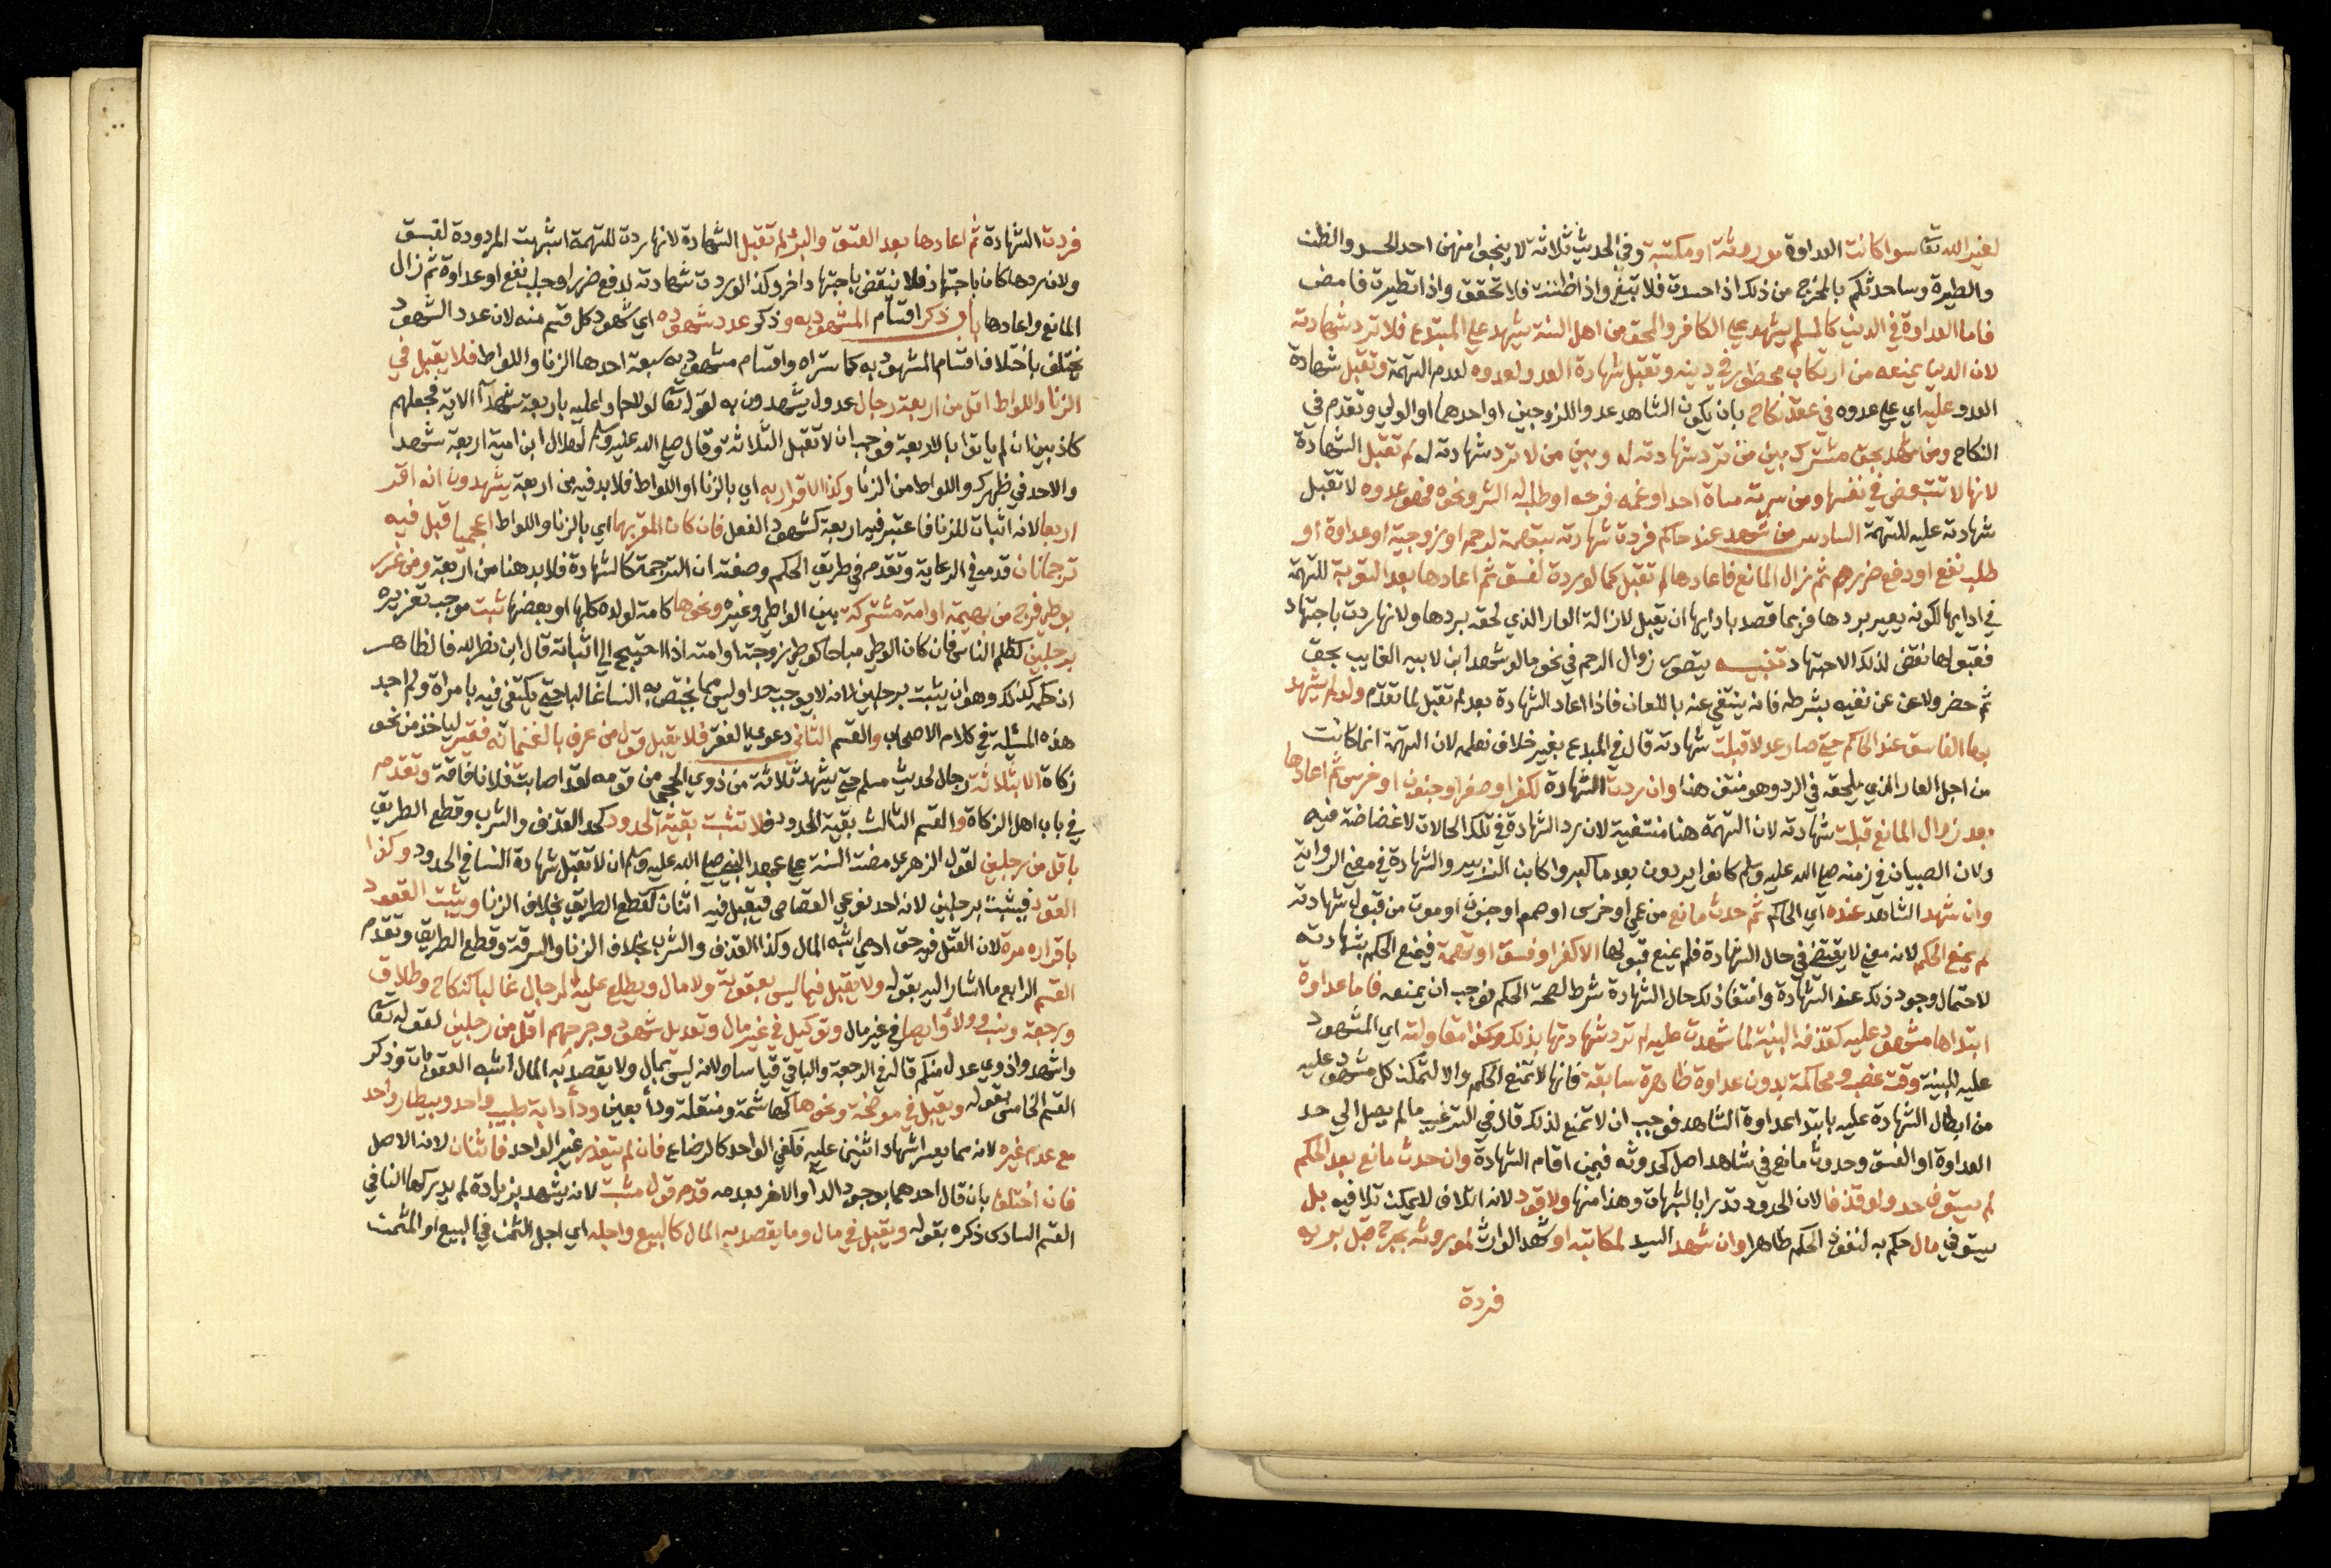 لغير الله تعا سوا كانت العداوة موروثة او مكتسبة وفي الحديث ثلاثة لا ينجوا منهن احد الحسد والظن
والطيرة وساحدثكم بالمخرج من ذلك اذا حسدت فلا تبغ واذا ظننت فلا تحقق واذا تطيرت فامض
فاما العداوة في الدين كالمسلم يشهد علي الكافر والمحق من اهل السنة يشهد علي المبتدع فلا ترد شهادته
لان الدين يمنعه من ارتكاب محظور في دينه وتقبل شهادة العدو لعدوه لعدم التهمة وتقبل شهادة
العدو عليه اي علي عدوه في عقد نكاح بان يكون الشاهد عدو اللزوجين او احدهما او الولي وتقدم في
النكاح ومن شهد بحق مشترك بين من ترد شهادته له وبين من لا ترد شهادته له لم تقبل الشهادة
لانها لا تتبعض في نفسها ومن سره مساة احد او غمه فرحه او طلب له الشر ونحوه فهو عدوه لا تقبل
شهادته عليه للتهمة السادس من شهد عند حاكم فردت شهادته بتهمة لرحم او زوجية او عداوة او
طلب نفع او دفع ضرر ثم زال المانع فاعادها لم تقبل كما لو ردة لفسق ثم اعادها بعد التوبة للتهمة
في ادايها لكونه يعير بردها فربما قصد بادايها ان يقبل لازالة العار الذي لحقه بردها ولانها ردت باجتهاد
فقبولها نقض لذلك الاجتهاد تنبيه يتصور زوال الرحم في نحو ما لو شهد ابن لابيه الغايب بحق
ثم حضر ولاعن عن نفيه بشرطه فانه ينتفي عنه باللعان فاذا اعاد الشهادة بعد لم تقبل لما تقدم ولو لم يشهد
بها الفاسق عند الحاكم حتي صار عدلا قبلت شهادته قال في المبدع بغير خلاف نعلمه لان التهمة انما كانت
من اجل العار الذي يلحقه في الرد وهو منتف هنا وان ردت الشهادة لكفر او صغر او جنون او خرس ثم اعادها
بعد زوال المانع قبلت شهادته لان التهمة هنا منتفية لان رد الشهادة في تلك الحالات لا غضاضة فيه
ولان الصبيان في زمنه صلي الله عليه وسلم كانوا يردون بعد ما كبروا كابن الزبير والشهادة في معني الرواية
وان شهد الشاهد عنده اي الحاكم ثم حدث مانع من عمي او خرس او صمم او جنون او موت من قبول شهادته
لم يمنع الحكم لانه معني لا يقتضي في حال الشهادة فلم يمنع قبولها الا كفر او فسق او تهمة فيمنع الحكم بشهادته
لاحتمال وجود ذلك عند الشهادة وانتفا ذلك حال الشهادة شرط لصحة الحكم فوجب ان يمنعه فاما عداوة
ابتداها مشهود عليه كقذفه البينة لما شهدت عليه لم ترد شهادتها بذلك وكذا مقاولته اي المشهود
عليه للبينة وقت غضب ومحاكمة بدون عداوة ظاهرة سابقة فانها لا تمنع الحكم والا لتمكن كل مشهود عليه
من ابطال الشهادة عليه بابتدا عداوة الشاهد فوجب ان لا تمنع لذلك قال في الترغيب ما لم يصل الي حد
العداوة او الفسق وحدوث مانع في شاهد اصل كحدوثه فيمن اقام الشهادة وان حدث مانع بعد الحكم
لم يستوف حد ولو قذفا لان الحدود تدرا بالشبهات وهذا منها ولا قود لانه اتلاف لا يمكن تلافيه بل
يستوفي مال حكم به لنفوذ الحكم ظاهرا وان شهد السيد لمكاتبه او شهد الوارث لموروثه بجرح قبل بريه
فردة
فردت الشهادة ثم اعادها بعد العتق والبرئ لم تقبل الشهادة لانها ردت للتهمة اشبهت المردودة لفسق
ولان ردها كان باجتهاد فلا ينتقض باجتهاد اخر وكذا لو ردت شهادته لدفع ضرر او جلب نفع او عداوة ثم زال
المانع واعادها باب ذكر اقسام المشهود به وذكر عدد شهوده اي شهود كل قسم منه لان عدد الشهود
يختلف باختلاف اقسام المشهود به كما ستراه واقسام مشهود به سبعة احدها الزنا واللواط فلا يقبل في
الزنا واللواط اقل من اربعة رجال عدول يشهدون به لقوله تعا لولا جاوا عليه باربعة شهدا الاية فجعلهم
كاذبين ان لم ياتوا بالاربعة فوجب ان لا تقبل الثلاثة وقال صلي الله عليه وسلم لهلال ابن امية اربعة شهدا
والا حد في ظهرك واللواط من الزنا وكذا الاقرار به اي بالزنا او اللواط فلا بد فيه من اربعة يشهدون انه اقر
اربعا لانه اثبات للزنا فاعتبر فيه اربعة كشهود الفعل فان كان المقر بهما اي بالزنا واللواط اعجميا قبل فيه
ترجمانان قدمه في الرعاية وتقدم في طريق الحكم وصفته ان الترجمة كالشهادة فلا بد هنا من اربعة ومن عزر
بوطي فرج من بهيمة او امة مشتركة بين الواطي وغيره ونحوها كامة لولده كلها او بعضها ثبت موجب تعزيره
برجلين كظلم الناس فان كان الوطي مباحا كوطي زوجته او امته اذا احتيج الي اثباته قال ابن نصر الله فالظاهر
ان حكمه كذلك وهو ان يثبت برجلين لانه لا يوجب حدا وليس مما يختص به النسا غالبا حتي يكتفي فيه بامراة ولم اجد
هذه المسئلة في كلام الاصحاب والقسم الثاني دعوي الفقر فلا يقبل قول من عرف بالغني انه فقير لياخذ من نحو
زكاة الا بثلاثة رجال لحديث مسلم حتي يشهد ثلاثة من ذوي الحجي من قومه لقد اصابت فلانا فاقة وتقدم
في باب اهل الزكاة والقسم الثالث بقية الحدود فلا تثبت بقية الحدود كحد القذف والشرب وقطع الطريق
باقل من رجلين لقول الزهري مضت السنة علي عهد النبي صلي الله عليه وسلم ان لا تقبل شهادة النسا في الحدود وكذا
القود فيثبت برجلين لانه احد نوعي القصاص فيقبل فيه اثنان كقطع الطريق بخلاف الزنا ويثبت القود
باقراره مرة لان القتل فيه حق ادمي اشبه المال وكذا القذف والشرب بخلاف الزنا والسرقة وقطع الطريق وتقدم
القسم الرابع ما اشار اليه بقوله ولا يقبل فيما ليس بعقوبة ولا مال ويطلع عليه الرجال غالبا كنكاح وطلاق
ورجعة ونسب وولا وايصا في غير مال وتوكيل في غير مال وتعديل شهود وجرحهم اقل من رجلين لقوله تعا
واشهدوا ذوي عدل منكم قاله في الرجعة والباقي قياسا ولانه ليس بمال ولا يقصد به المال اشبه العقوبات وذكر
القسم الخامس بقوله ويقبل في موضحة ونحوها كهاشمة ومنقلة ودا بعين ودا دابة طبيب واحد وبيطار واحد
مع عدم غيره لانه مما يعسر اشهاد اثنين عليه فكفي الواحد كالرضاع فان لم يتعذر غير الواحد فاثنان لانه الاصل
فان اختلفا بان قال احدهما بوجود الدا والاخر بعدمه قدم قول مثبت لانه يشهد بزيادة لم يدركها النافي
القسم السادس ذكره بقوله ويقبل في مال وما يقصد به المال كالبيع واجله اي اجل الثمن في البيع او المثمن